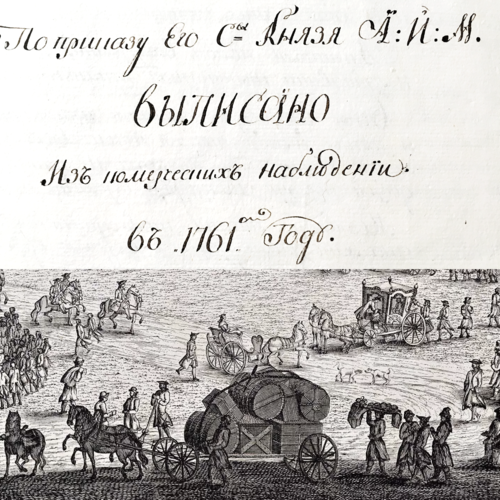 По приказу Его С:ы Князя А: Й: М.
ВЫПИСАНО
Изъ комерческихъ наблюдении.
въ 1761.ом Годѣ.